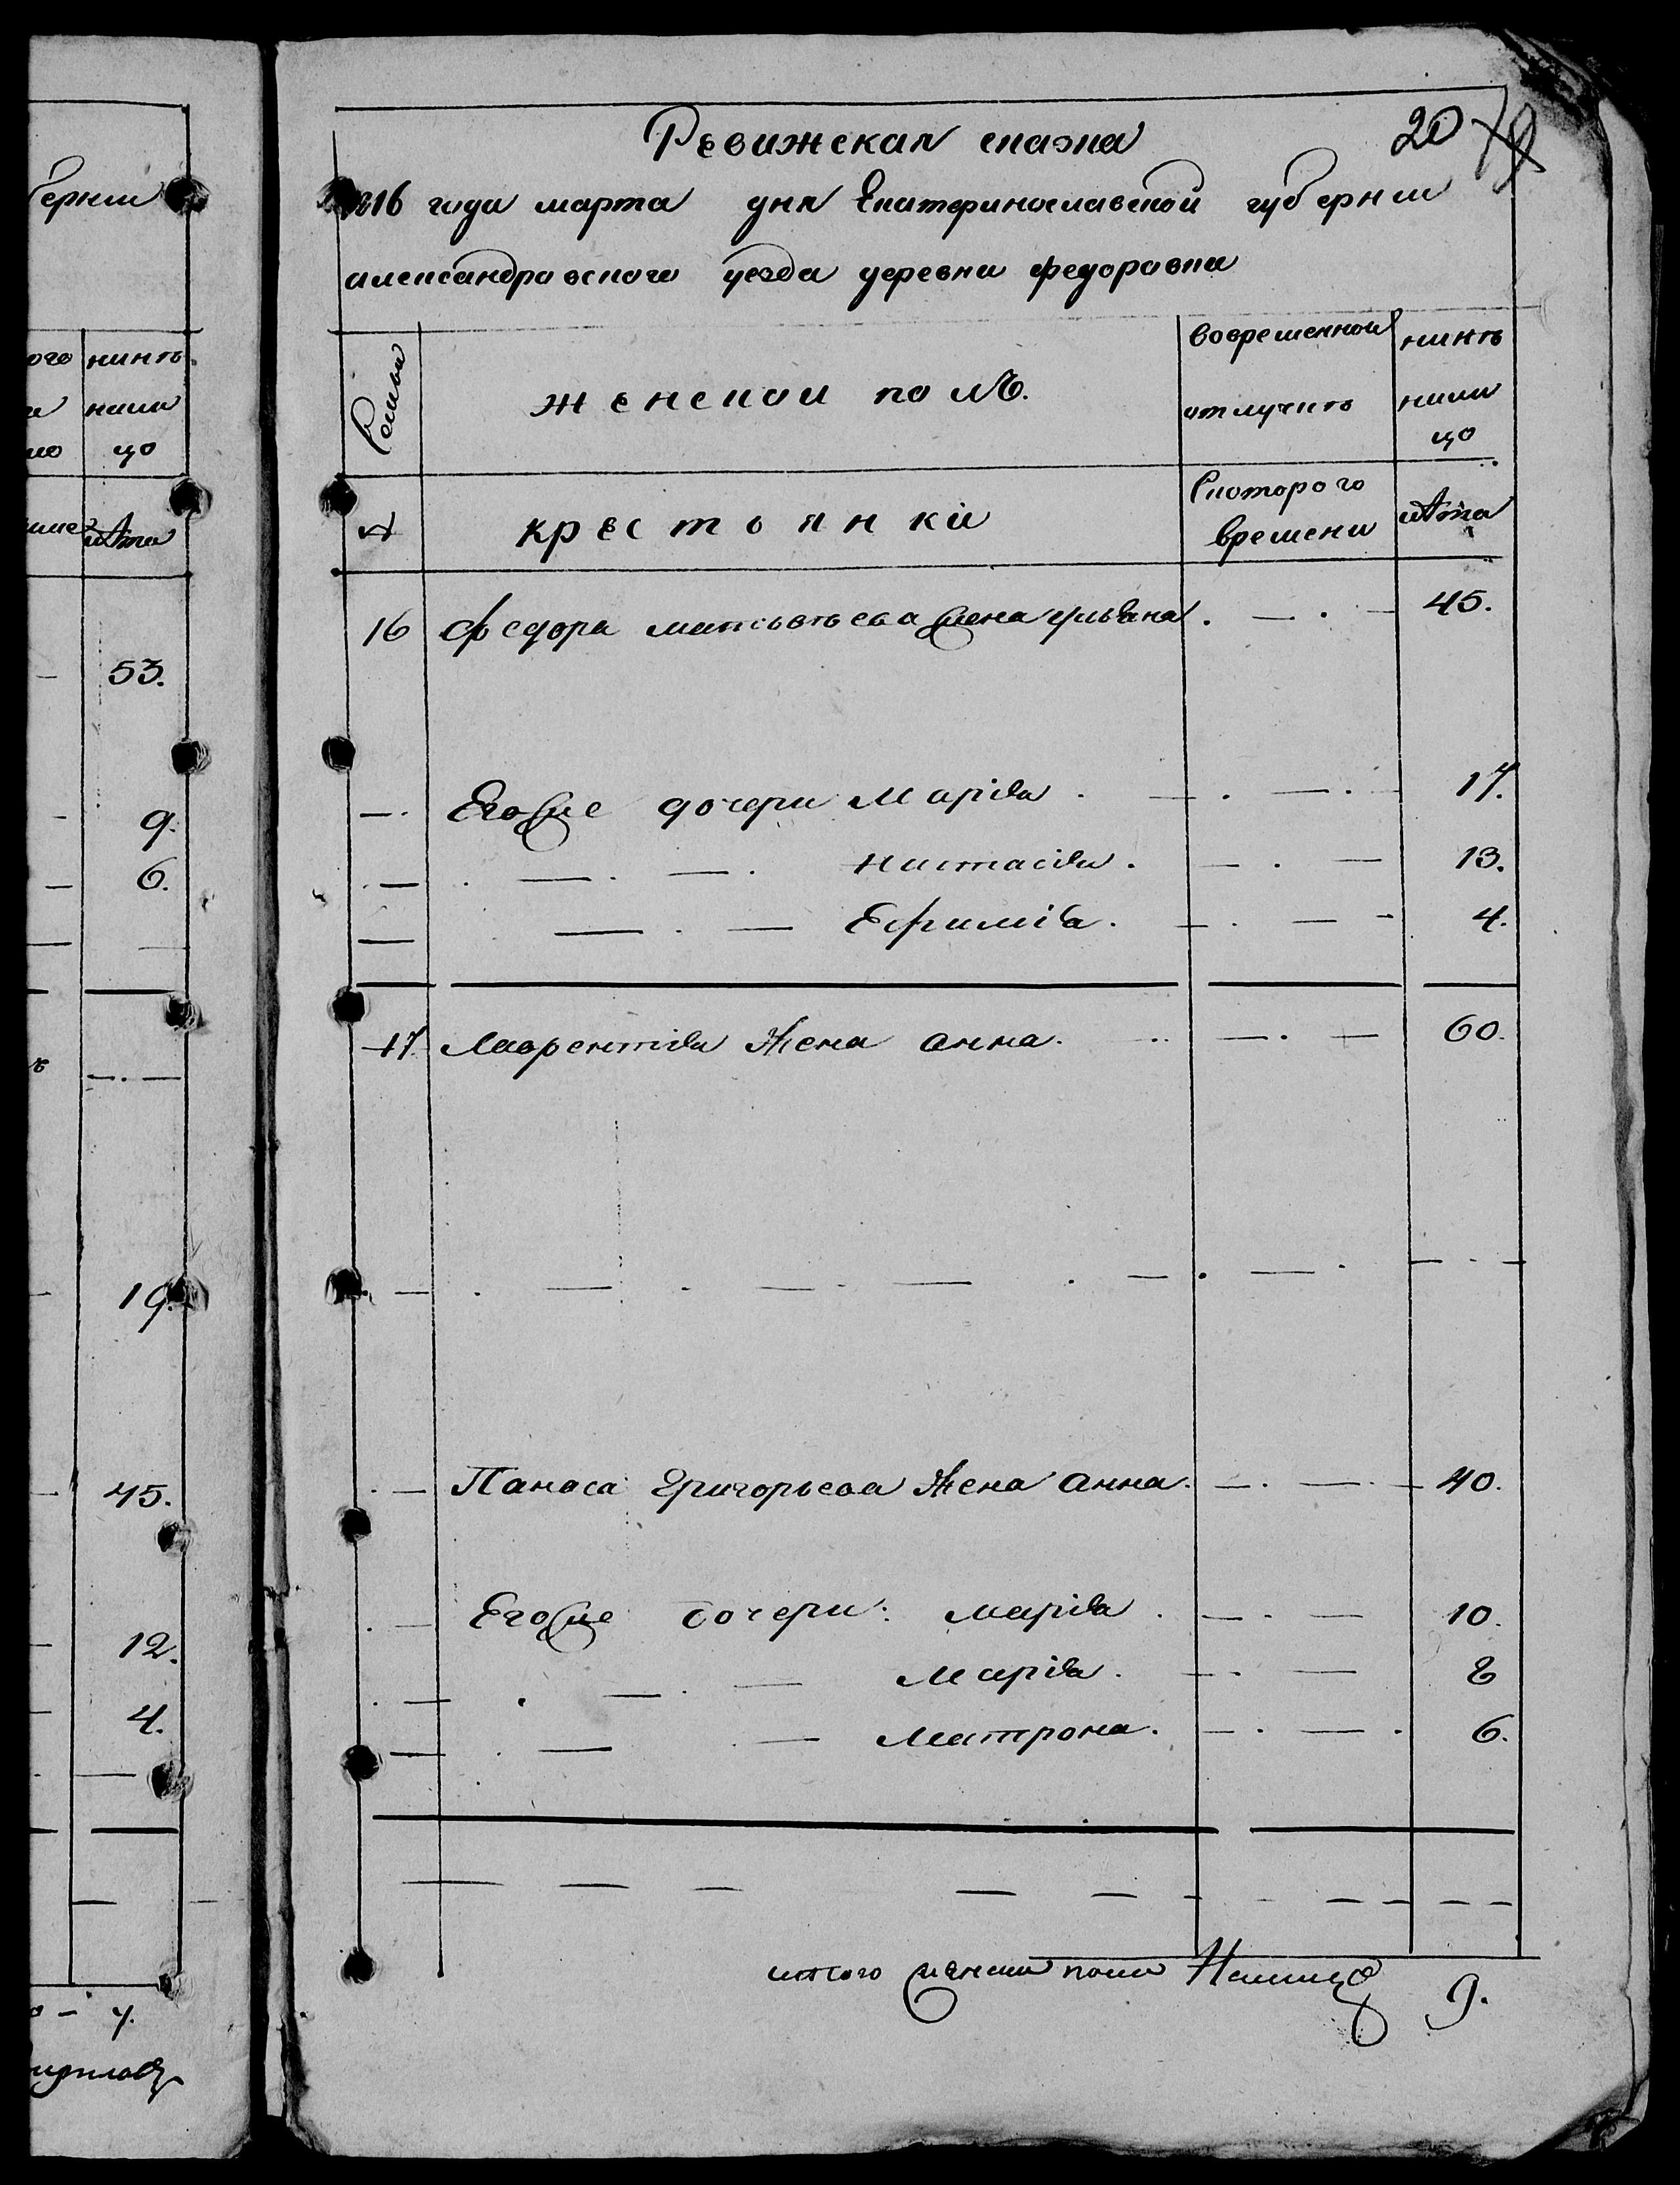 бернии
ого нинѣ
нали
цо
лѣта
53.
9.
6.
19.
45.
12.
4.
7.
20
Ревижская скаска
1816 года марта дня Екатеринославской губернии
александровского уезда деревни федоровки
Семьи
женской полъ.
вовременной
отлучкѣ
нинѣ
нали
цо
№
крестьянки
Скоторого
времени
лѣта
16 федора матвѣева жена ульяна . — . — 45.
—. Егоже дочери Маріа . — . — . — 17.
. — . — . — . настасіа . — . — 13.
— — . — Ефиміа . — . — - 4.
17. Лаврентіа Жена анна. .. — . — 60.
. — Панаса Григорьева Жена анна. — . — . — 40.
. — Егоже дочери: маріа . — . — 10.
. — . — . — Маріа . — . — 8
— . — . — Матрона . — . — . 6.
итого женска пола Налицо 9.